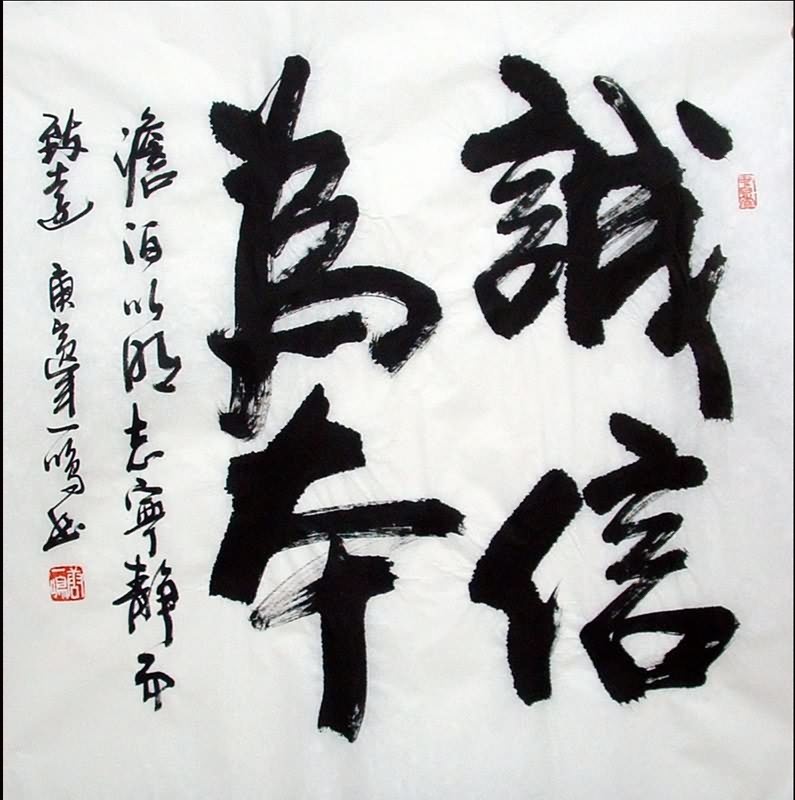 誠信
為本
澹泊以明志寧靜而
致遠 庚寅年一鳴书